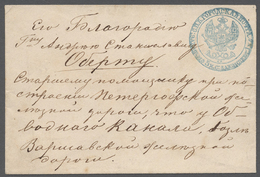 Его Благородію
Гну Андрею Станиславовичу
Оберту
Старшему помощнику при по-
строеніи Петергофской же-
лѣзной дороги, что у Об-
воднаго Канала, возлѣ
Варшавской желѣзной
дороги.